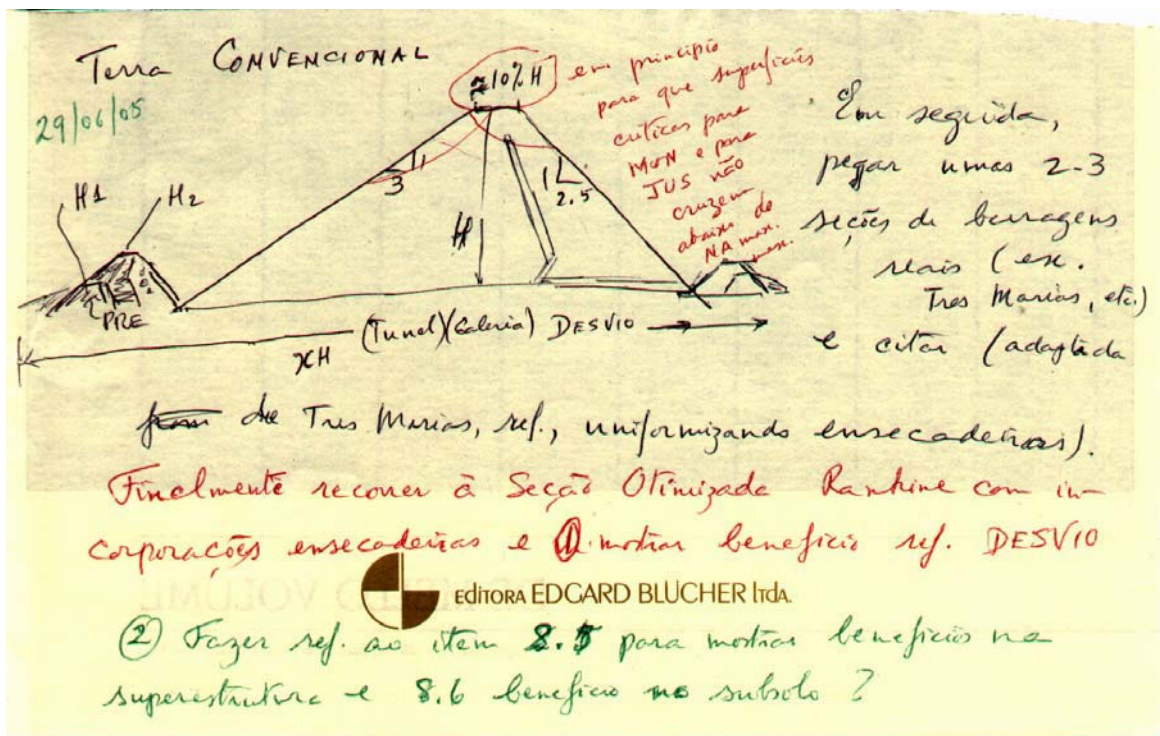 Terra CONVENCIONAL
29/06/05
≈10% H
em princípio
para que superfícies
críticas para
MON e para
JUS não
cruzem
abaixo do
NA max.
max.
Em seguida,
pegar umas 2-3
seções de barragens
reais (ex.
Tres Marias, etc.)
e citar (adaptada
H1
H2
PRE
1
3
H
1
2.5
(Tunel)(Galeria) DESVIO
xH
de Tres Marias, ref., uniformizando ensecadeiras).
Finalmente recorrer à Seção Otimizada Rankine com in-
corporações ensecadeiras e ① mostrar benefício ref. DESVIO
editora EDGARD BLÜCHER ltda.
② Fazer ref. ao item 8.5 para mostrar benefícios na
superestrutura e 8.6 benefício no subsolo ?